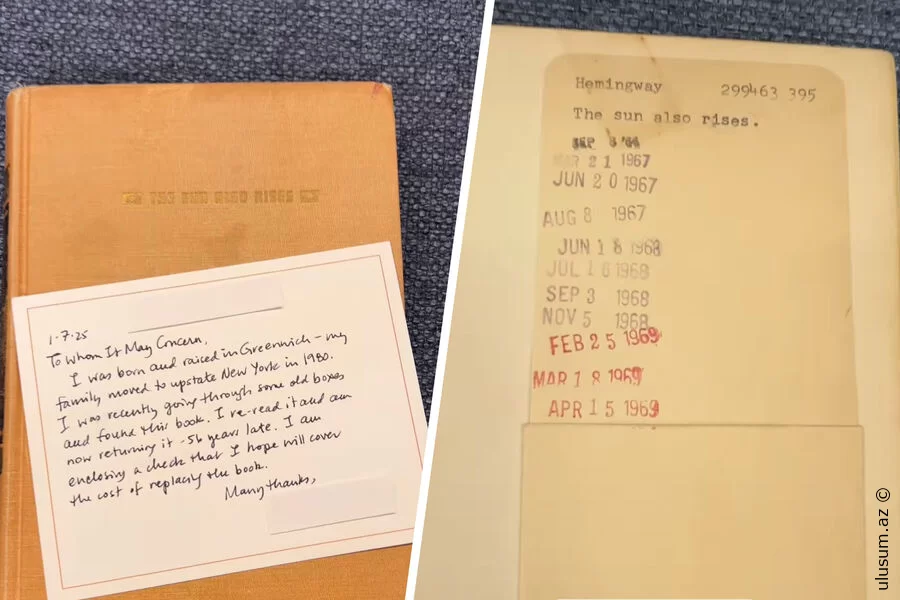 THE SUN ALSO RISES
1-7-25
To Whom It May Concern,
I was born and raised in Greenwich - my
family moved to upstate New York in 1980.
I was recently going through some old boxes
and found this book. I re-read it and am
now returning it - 56 years late. I am
enclosing a check that I hope will cover
the cost of replacing the book.
Many thanks,
Hemingway 299463 395
The sun also rises.
SEP
MAR 21 1967
JUN 20 1967
AUG 8 1967
JUN 18 1968
JUL 16 1968
SEP 3 1968
NOV 5 1968
FEB 25 1969
MAR 18 1969
APR 15 1969
ulusum.az ©